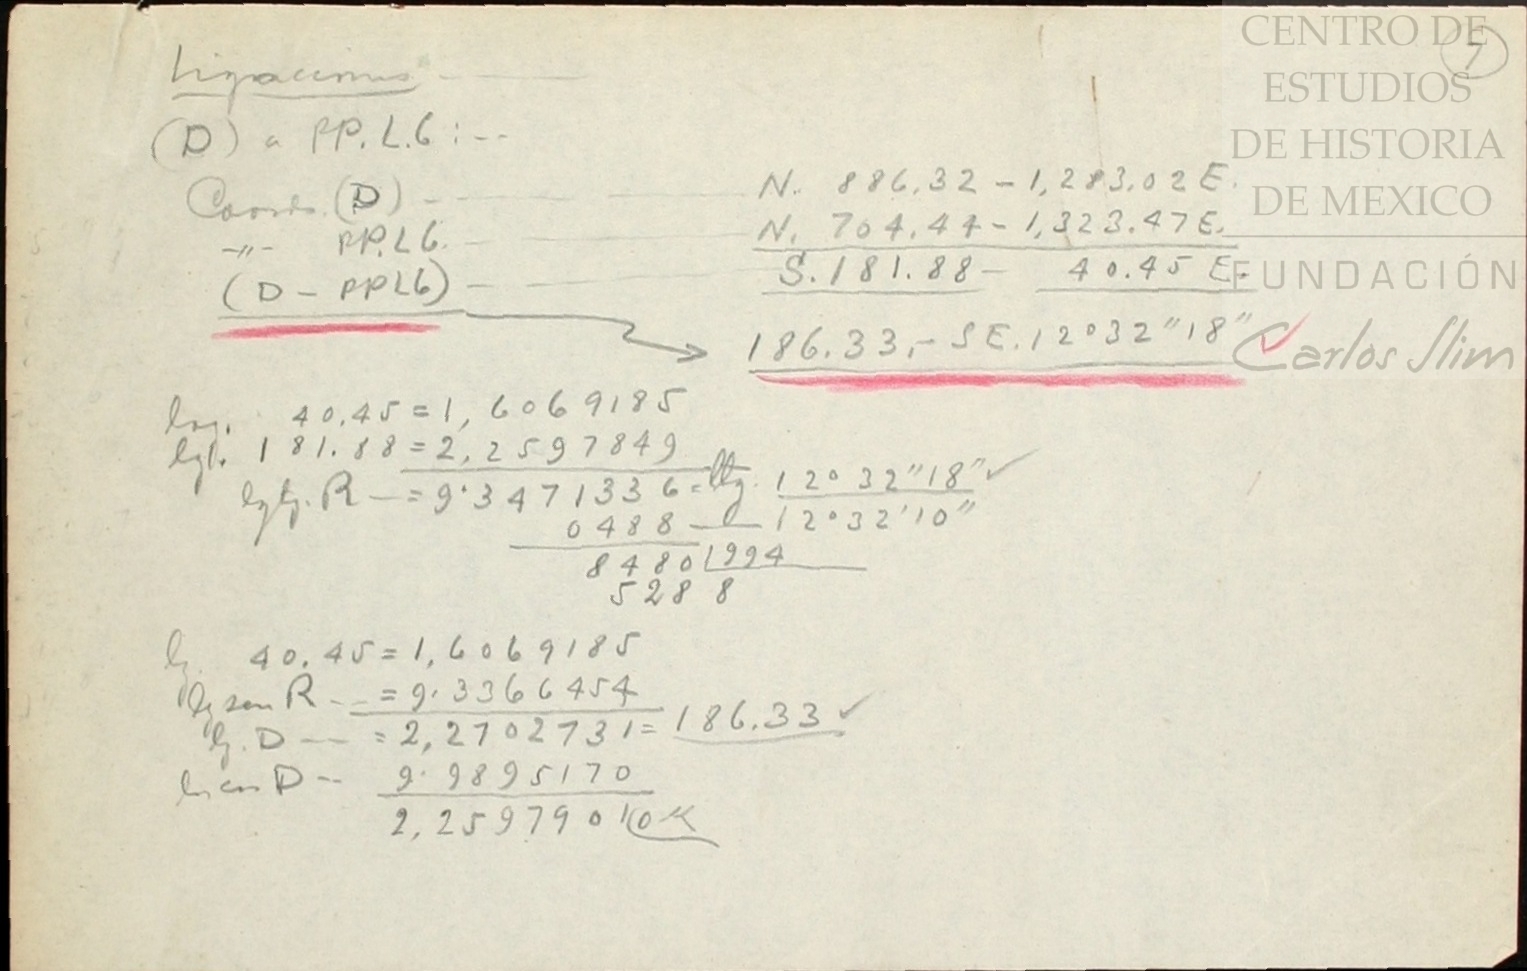 CENTRO DE
ESTUDIOS
DE HISTORIA
DE MEXICO
FUNDACIÓN
Carlos Slim
7
Ligaciones
(D) a PP.L.6:--
Coords. (D) - N. 886.32 - 1,283.02 E.
-"- PP.L6. - N. 704.44 - 1,323.47 E.
(D - PPL6) - S. 181.88 - 40.45 E.
186.33.- SE. 12°32"18"
log. 40.45 = 1,6069185
lgt. 181.88 = 2,2597849
lgtg. R - = 9.3471336 = ltg. 12°32"18" ✓
0488 - 12°32'10"
8480 | 994
528 8
lg. 40.45 = 1,6069185
lg sen R -- = 9.3366454
lg. D - = 2,2702731 = 186.33 ✓
ln cos D -- 9.9895170
2,2597901 OK